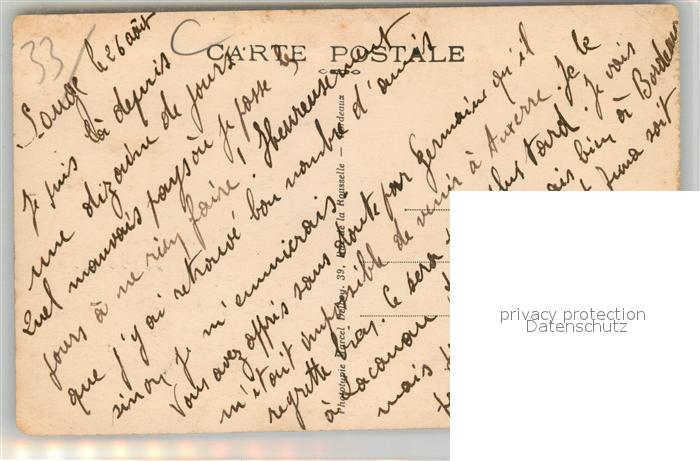 33
C
CARTE POSTALE
Souge le 26 août
Je suis là depuis
une dizaine de jours.
Quel mauvais pays où je passe les
jours à ne rien faire! Heureusement
que j'y ai retrouvé bon nombre d'amis
sinon je m'ennuierais.
Vous avez appris sans doute par Germaine qu'il
m'était impossible de venir à Auxerre. Je le
regrette bien. Ce sera plus tard. Je vais
à Lacanau
mais bien à Bordeaux
mais
soit
Phototypie Marcel Delboy, 39, Rue de la Rousselle — Bordeaux
privacy protection
Datenschutz